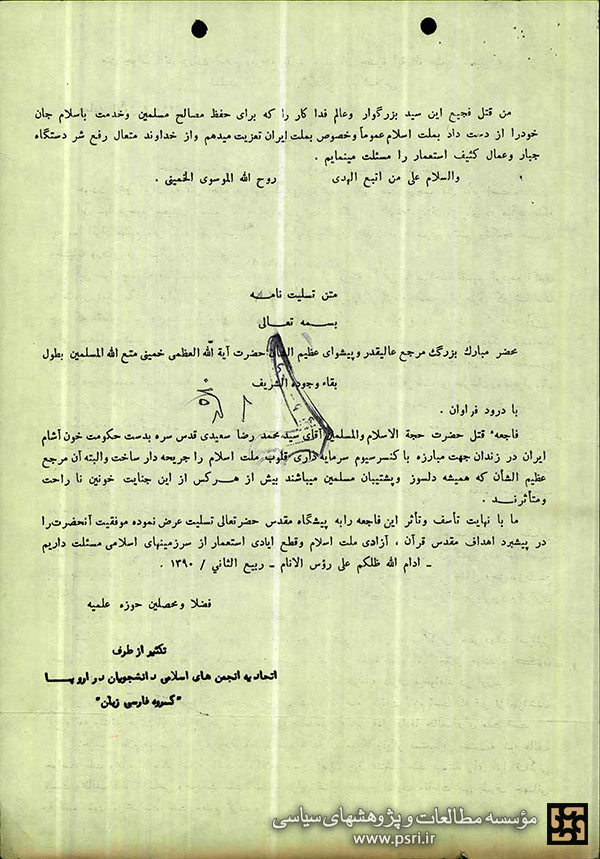 من قتل فجیع این سید بزرگوار وعالم فدا کار را که برای حفظ مصالح مسلمین وخدمت باسلام جان
خودرا از دست داد بملت اسلام عموماً وخصوص بملت ایران تعزیت میدهم واز خداوند متعال رفع شر دستگاه
جبار وعمال کثیف استعمار را مسئلت مینمایم .
والسلام علی من اتبع الهدی روح الله الموسوی الخمینی .
متن تسلیت نامه
بسمه تعالی
محضر مبارك بزرگ مرجع عالیقدر و پیشوای عظیم الشان حضرت آیة الله العظمی خمینی متع الله المسلمین بطول
بقاء وجوده الشریف
با درود فراوان .
فاجعه قتل حضرت حجة الاسلام والمسلمین آقای سید محمد رضا سعیدی قدس سره بدست حکومت خون آشام
ایران در زندان جهت مبارزه با کنسرسیوم سرمایه داری قلوب ملت اسلام را جریحه دار ساخت والبته آن مرجع
عظیم الشأن که همیشه دلسوز وپشتیبان مسلمین میباشند بیش از هرکس از این جنایت خونین نا راحت
ومتأثرند .
ما با نهایت تأسف وتأثر این فاجعه رابه پیشگاه مقدس حضرتعالی تسلیت عرض نموده موفقیت آنحضرت را
در پیشبرد اهداف مقدس قرآن ، آزادی ملت اسلام وقطع ایادی استعمار از سرزمینهای اسلامی مسئلت داریم
ـ ادام الله ظلکم علی رؤس الانام ـ ربیع الثاني / ۱۳۹۰ .
فضلا ومحصلین حوزه علمیه
تکثیر از طرف
اتحادیه انجمن های اسلامی دانشجویان در اروپا
"گروه فارسی زبان"
مؤسسه مطالعات و پژوهشهای سیاسی
www.psri.ir